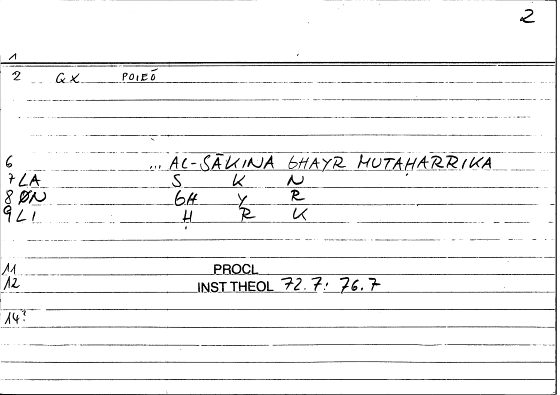 2
1
2 GX POIEŌ
6 ... AL-SĀKINA GHAYR MUTAḤARRIKA
7 LA S K N
8 ØN GH Y R
9 LI Ḥ R K
11 PROCL
12 INST THEOL 72.7: 76.7
14?